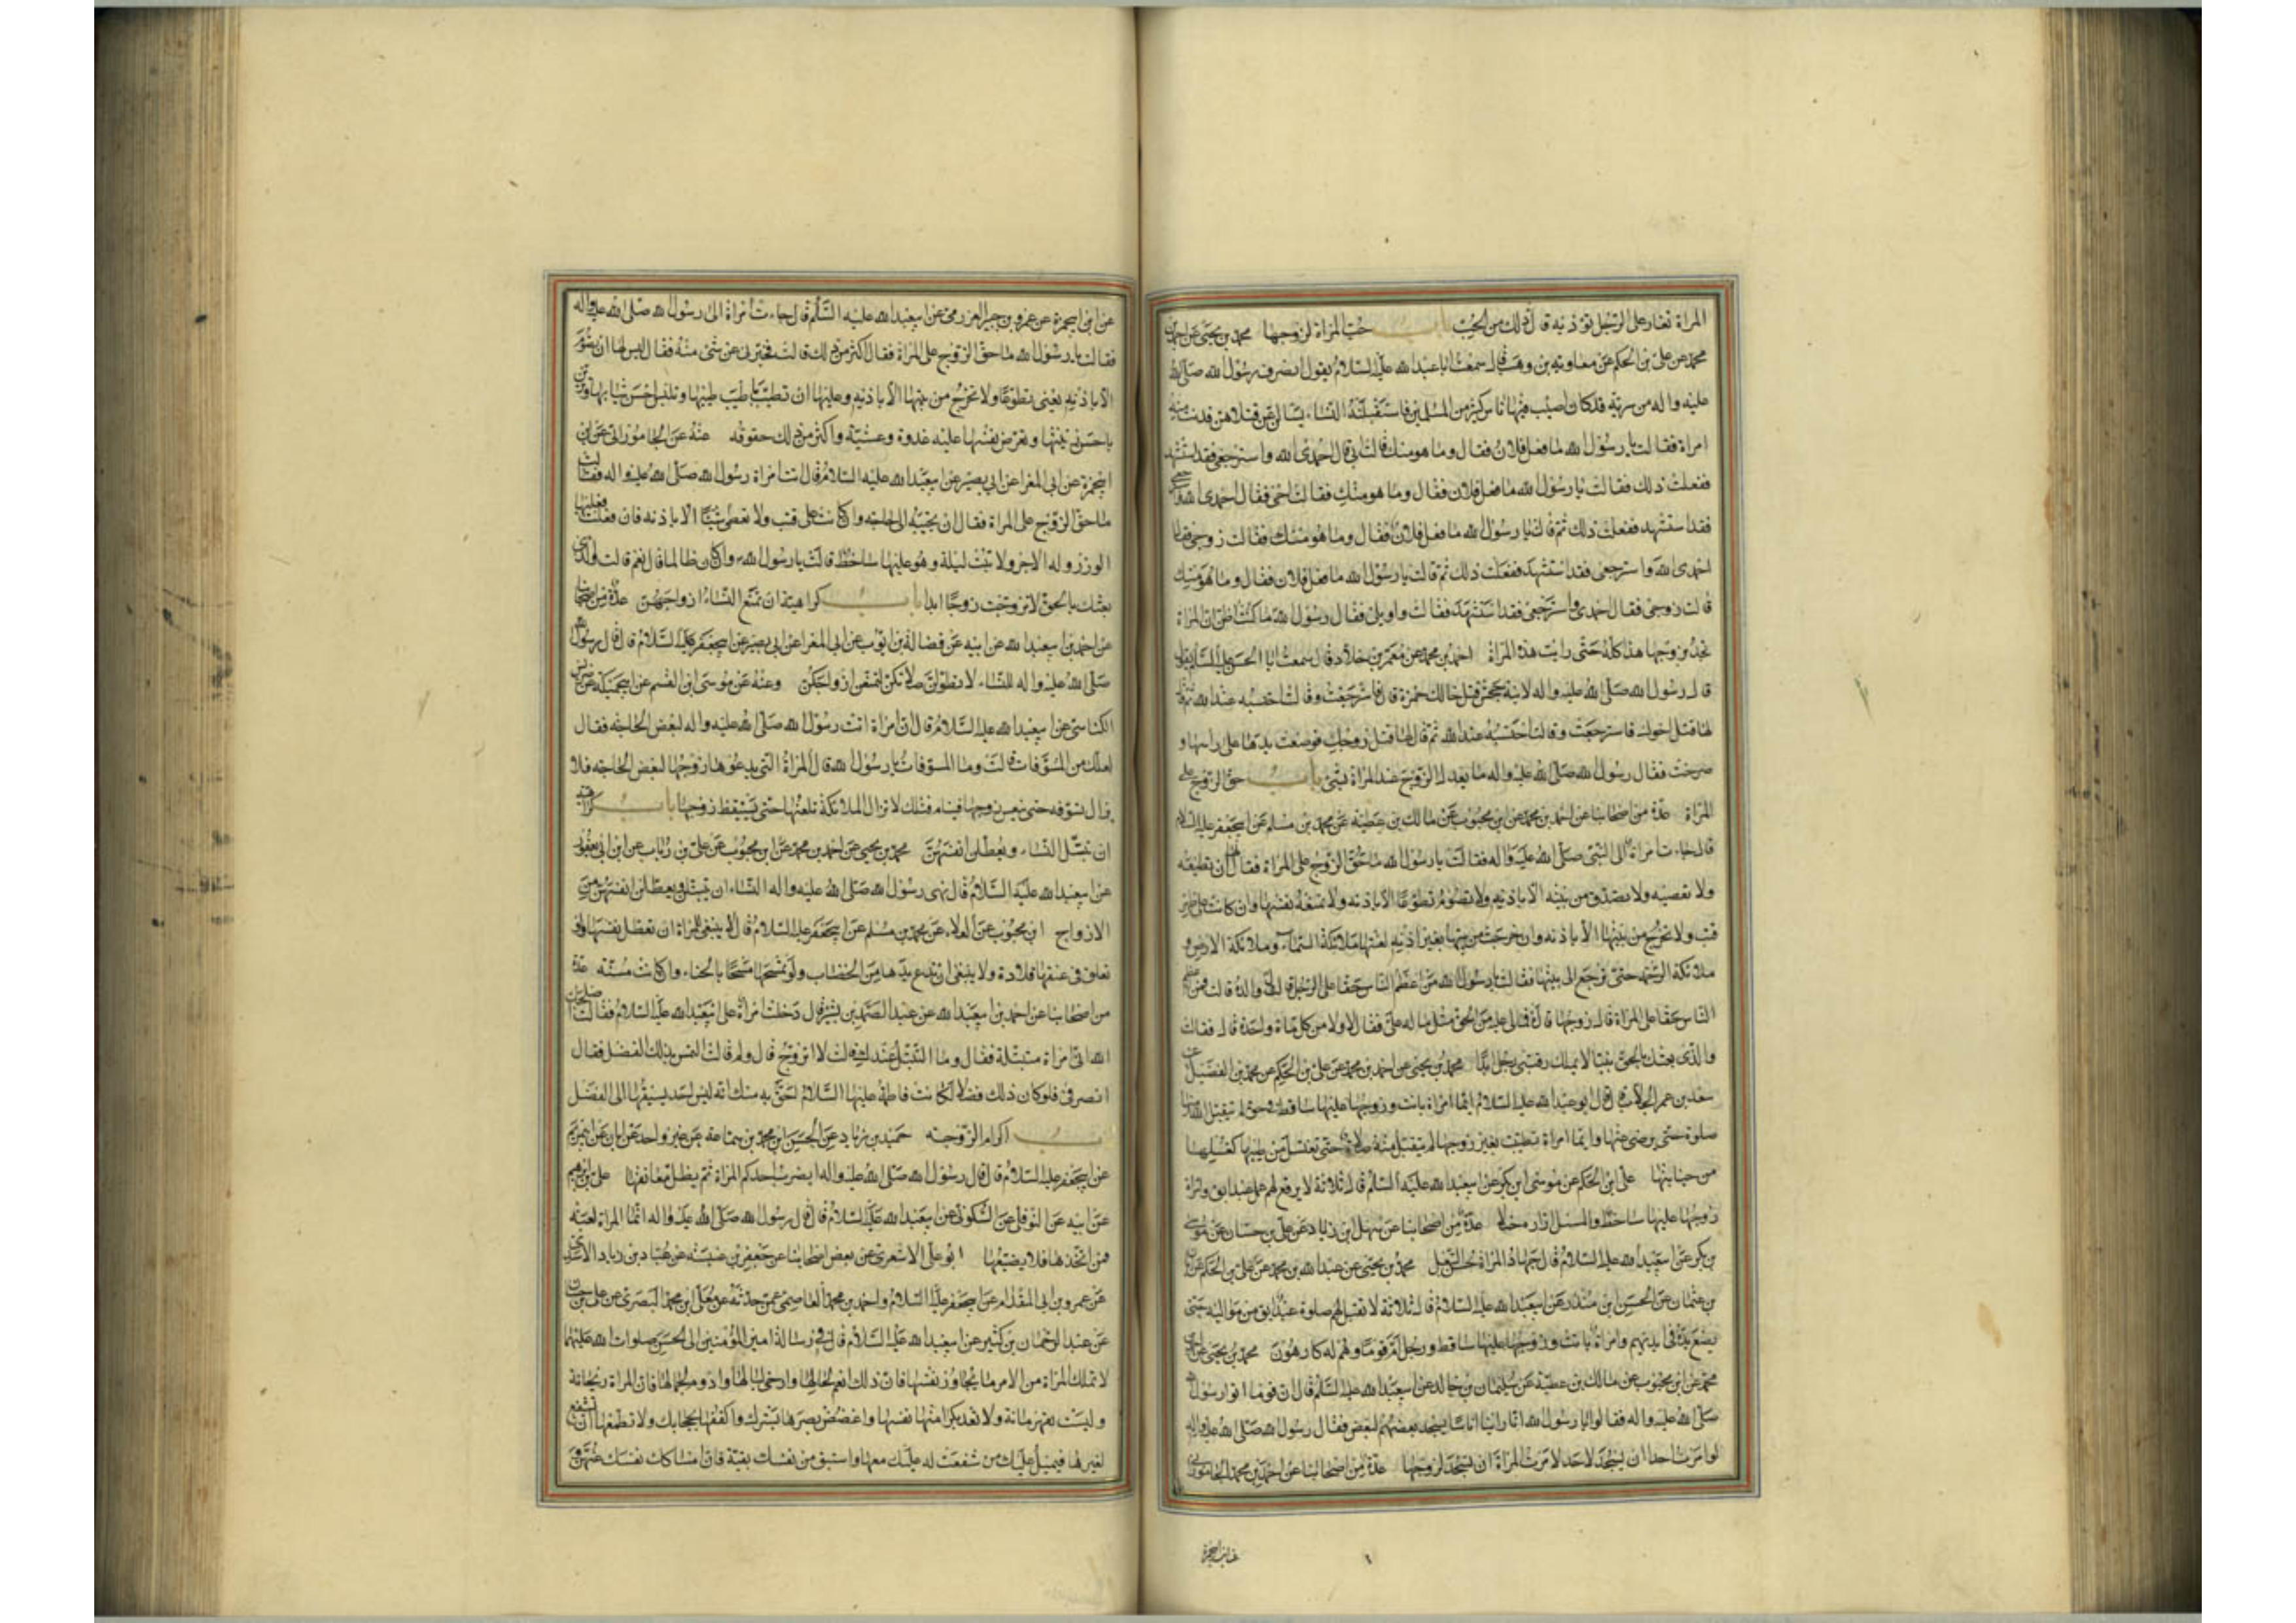 المراة تغار على الرجل تؤذيه قال ذلك من الحب باب حب المراة لزوجها محمد بن يحيى عن احمد بن
محمد عن علي بن الحكم عن معاوية بن وهب قال سمعت ابا عبد الله عليه السلام يقول انصرف رسول الله صلى الله
عليه واله من سرية قد كان اصيب فيها ناس كثير من المسلمين فاستقبلته النساء يسالن عن قتلاهن فدنت منه
امراة فقالت يا رسول الله ما فعل فلان فقال وما هو منك قالت ابي قال احمدي الله واسترجعي فقد استشهد
ففعلت ذلك فقالت يا رسول الله ما فعل فلان فقال وما هو منك فقالت اخي فقال احمدي الله و
فقد استشهد ففعلت ذلك ثم قالت يا رسول الله ما فعل فلان فقال وما هو منك فقالت زوجي فقال
احمدي الله واسترجعي فقد استشهد ففعلت ذلك ثم قالت يا رسول الله ما فعل فلان فقال وما هو منك
قالت زوجي فقال احمدي واسترجعي فقد استشهد فقالت واويلي فقال رسول الله ما كنت اظن ان المراة
تجد بزوجها هذا كله حتى رايت هذه المراة احمد بن محمد عن معمر بن خلاد قال سمعت ابا الحسن عليه السلام يقول
قال رسول الله صلى الله عليه واله لابنة جحش قتل خالك حمزة قال فاسترجعت وقالت احتسبه عند الله ثم قال
لها قتل اخوك فاسترجعت وقالت احتسبه عند الله ثم قال لها قتل زوجك فوضعت يدها على راسها و
صرخت فقال رسول الله صلى الله عليه واله ما يعدل الزوج عند المراة شئ باب حق الزوج على
المراة عدة من اصحابنا عن احمد بن محمد عن ابن محبوب عن مالك بن عطية عن محمد بن مسلم عن ابي جعفر عليه السلام
قال جاءت امراة الى النبي صلى الله عليه واله فقالت يا رسول الله ما حق الزوج على المراة فقال لها ان تطيعه
ولا تعصيه ولا تصدق من بيته الا باذنه ولا تصوم تطوعا الا باذنه ولا تمنعه نفسها وان كانت على ظهر
قتب ولا تخرج من بيتها الا باذنه وان خرجت من بيتها بغير اذنه لعنتها ملائكة السماء وملائكة الارض و
ملائكة الرحمة حتى ترجع الى بيتها فقالت يا رسول الله من اعظم الناس حقا على الرجل قال والده قالت فمن اعظم
الناس حقا على المراة قال زوجها قالت فما لي عليه من الحق مثل ما له علي فقال لا ولا من كل مائة واحدة قال فقالت
والذي بعثك بالحق نبيا لا يملك رقبتي رجل ابدا محمد بن يحيى عن احمد بن محمد عن علي بن الحكم عن محمد بن الفضيل عن
سعد بن عمر الجلاب قال قال ابو عبد الله عليه السلام ايما امراة باتت وزوجها عليها ساخط في حق لم يتقبل الله منها
صلوة حتى يرضى عنها وايما امراة تطيبت بغير زوجها لم يتقبل منها صلاة حتى تغتسل من طيبها كغسلها
من جنابتها علي بن الحكم عن موسى بن بكر عن ابي عبد الله عليه السلام قال ثلاثة لا يرفع لهم عمل عبد ابق وامراة
زوجها عليها ساخط والمسبل ازاره خيلاء عدة من اصحابنا عن سهل بن زياد عن علي بن حسان عن موسى
بن بكر عن ابي عبد الله عليه السلام قال جهاد المراة حسن التبعل محمد بن يحيى عن عبد الله بن محمد عن علي بن الحكم عن ابان
بن عثمان عن الحسن بن منذر عن ابي عبد الله عليه السلام قال ثلاثة لا تقبل لهم صلوة عبد ابق من مواليه حتى
يضع يده في ايديهم وامراة باتت وزوجها عليها ساخط ورجل ام قوما وهم له كارهون محمد بن يحيى عن احمد بن
محمد عن ابن محبوب عن مالك بن عطية عن سليمان بن خالد عن ابي عبد الله عليه السلام قال ان قوما اتوا رسول الله
صلى الله عليه واله فقالوا يا رسول الله انا راينا اناسا يسجد بعضهم لبعض فقال رسول الله صلى الله عليه واله
لو امرت احدا ان يسجد لاحد لامرت المراة ان تسجد لزوجها عدة من اصحابنا عن احمد بن محمد الجاموراني
عن ابن ابي حمزة
عن ابن ابي حمزة عن عمرو بن جبير العزرمي عن ابي عبد الله عليه السلام قال جاءت امراة الى رسول الله صلى الله عليه واله
فقالت يا رسول الله ما حق الزوج على المراة فقال اكثر من ذلك قالت فخبرني عن شئ منه فقال ليس لها ان تصوم
الا باذنه يعني تطوعا ولا تخرج من بيتها الا باذنه وعليها ان تطيب باطيب طيبها وتلبس احسن ثيابها وتزين
باحسن زينتها وتعرض نفسها عليه غدوة وعشية واكثر من ذلك حقوقه عنه عن الجاموراني عن ابن
ابي حمزة عن ابي المغرا عن ابي بصير عن ابي عبد الله عليه السلام قال اتت امراة رسول الله صلى الله عليه واله فقالت
ما حق الزوج على المراة فقال ان تجيبه الى حاجته وان كانت على قتب ولا تعطي شيئا الا باذنه فان فعلت فعليها
الوزر وله الاجر ولا تبيت ليلة وهو عليها ساخط قالت يا رسول الله وان كان ظالما قال نعم قالت والذي
بعثك بالحق لا تزوجت زوجا ابدا باب كراهية ان تمنع النساء ازواجهن عدة من اصحابنا
عن احمد بن ابي عبد الله عن ابيه عن فضالة بن ايوب عن ابي المغرا عن ابي بصير عن ابي جعفر عليه السلام قال قال رسول الله
صلى الله عليه واله للنساء لا تطولن صلاتكن لتمنعن ازواجكن وعنه عن موسى بن القسم عن ابي جميلة عن ضريس
الكناسي عن ابي عبد الله عليه السلام قال ان امراة اتت رسول الله صلى الله عليه واله لبعض الحاجة فقال
لعلك من المسوفات قالت وما المسوفات يا رسول الله قال المراة التي يدعوها زوجها لبعض الحاجة فلا
تزال تسوفه حتى ينعس زوجها فينام فتلك لا تزال الملائكة تلعنها حتى يستيقظ زوجها باب كراهية
ان تبتل النساء ويعطلن انفسهن محمد بن يحيى عن احمد بن محمد عن ابن محبوب عن علي بن رئاب عن ابن ابي يعفور
عن ابي عبد الله عليه السلام قال نهى رسول الله صلى الله عليه واله النساء ان يتبتلن ويعطلن انفسهن من
الازواج ابن محبوب عن العلاء عن محمد بن مسلم عن ابي جعفر عليه السلام قال لا ينبغي للمراة ان تعطل نفسها ولو
تعلق في عنقها قلادة ولا ينبغي ان تدع يدها من الخضاب ولو تمسحها مسحا بالحناء وان كانت مسنة عدة
من اصحابنا عن احمد بن ابي عبد الله عن عبد الصمد بن بشير قال دخلت امراة على ابي عبد الله عليه السلام فقالت اصلحك
الله اني امراة متبتلة فقال وما التبتل عندك قالت لا اتزوج قال ولم قالت التمس بذلك الفضل فقال
انصرفي فلو كان ذلك فضلا لكانت فاطمة عليها السلام احق به منك انه ليس احد يسبقها الى الفضل
باب اكرام الزوجة حميد بن زياد عن الحسن بن محمد بن سماعة عن غير واحد عن ابان عن ابي مريم
عن ابي جعفر عليه السلام قال قال رسول الله صلى الله عليه واله ايضرب احدكم المراة ثم يظل معانقها علي بن ابراهيم
عن ابيه عن النوفلي عن السكوني عن ابي عبد الله عليه السلام قال قال رسول الله صلى الله عليه واله انما المراة لعبة
من اتخذها فلا يضيعها ابو علي الاشعري عن بعض اصحابنا عن جعفر بن عنبسة عن عباد بن زياد الاسدي
عن عمرو بن ابي المقدام عن ابي جعفر عليه السلام واحمد بن محمد العاصمي عمن حدثه عن معلى بن محمد البصري عن علي بن حسان
عن عبد الرحمان بن كثير عن ابي عبد الله عليه السلام قال في رسالة امير المؤمنين الى الحسن صلوات الله عليهما
لا تملك المراة من الامر ما يجاوز نفسها فان ذلك انعم لحالها وارخى لبالها وادوم لجمالها فان المراة ريحانة
وليست بقهرمانة ولا تعد بكرامتها نفسها واغضض بصرها بسترك واكففها بحجابك ولا تطمعها ان تشفع
لغيرها فيميل عليك من شفعت له عليك معها واستبق من نفسك بقية فان امساكك نفسك عنهن و